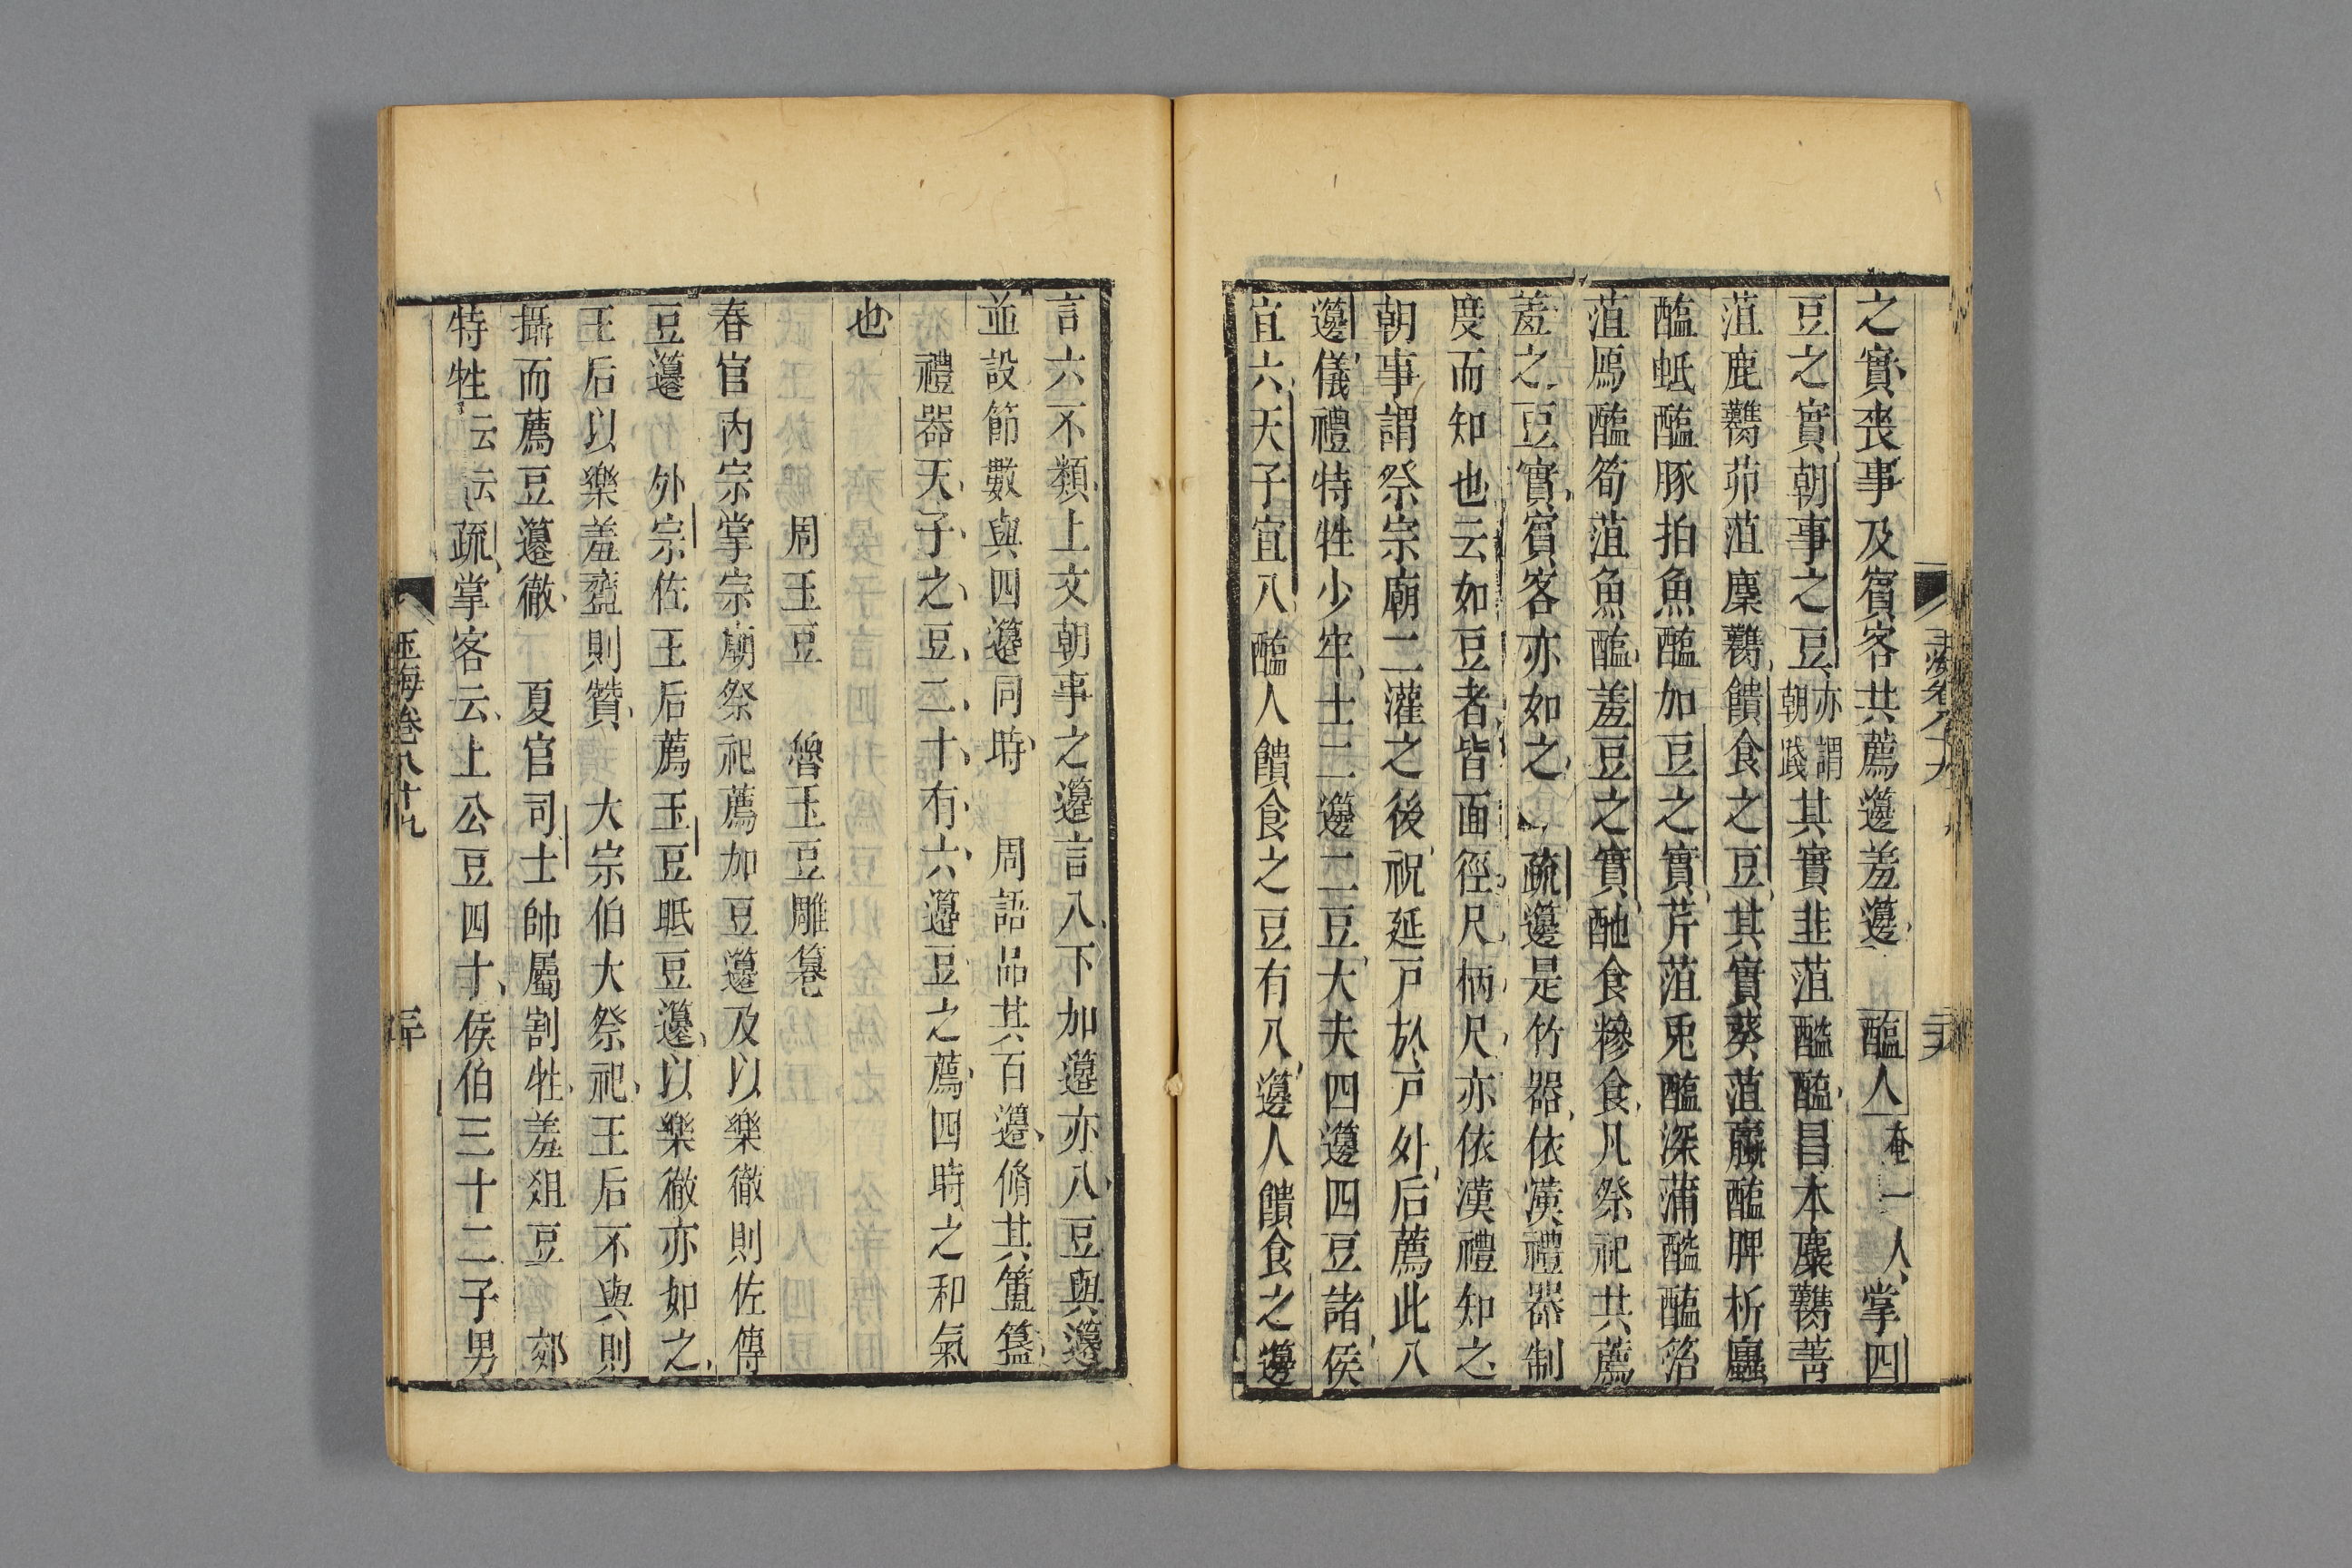 之實喪事及賓客共薦籩羞籩 醢人奄一人掌四
豆之實朝事之豆亦謂朝踐其實韭菹醓醢昌本麋臡菁
菹鹿臡茆菹麇臡饋食之豆其實葵菹蠃醢脾析蠯
醢蚳醢豚拍魚醢加豆之實芹菹兎醢深蒲醓醢箈
菹鴈醢筍菹魚醢羞豆之實酏食糝食凡祭祀共薦
羞之豆實賓客亦如之 疏籩是竹器依漢禮器制
度而知也云如豆者皆面徑尺柄尺亦依漢禮知之
朝事謂祭宗廟二灌之後祝延尸於戶外后薦此八
籩儀禮特牲少牢士二籩二豆大夫四籩四豆諸侯
宜六天子宜八醢人饋食之豆有八籩人饋食之籩
玉海卷八十九
言六不類上文朝事之籩言八下加籩亦八豆與籩
並設節數與四籩同時 周語品其百籩脩其簠簋
禮器天子之豆二十有六籩豆之薦四時之和氣
也
周玉豆 魯玉豆雕篹
春官內宗掌宗廟祭祀薦加豆籩及以樂徹則佐傳
豆籩 外宗佐王后薦玉豆眡豆籩以樂徹亦如之
王后以樂羞齍則贊 大宗伯大祭祀王后不與則
攝而薦豆籩徹 夏官司士帥屬割牲羞俎豆 郊
特牲云云疏掌客云上公豆四十侯伯三十二子男
玉海卷八十九 三十